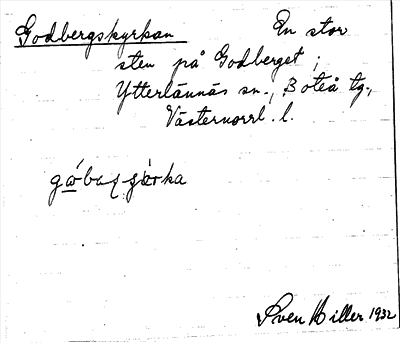 Godbergskyrkan En stor
sten på Godberget i
Ytterlännäs sn., Boteå tg.,
Västernorrl. l.
Sven Hiller 1932